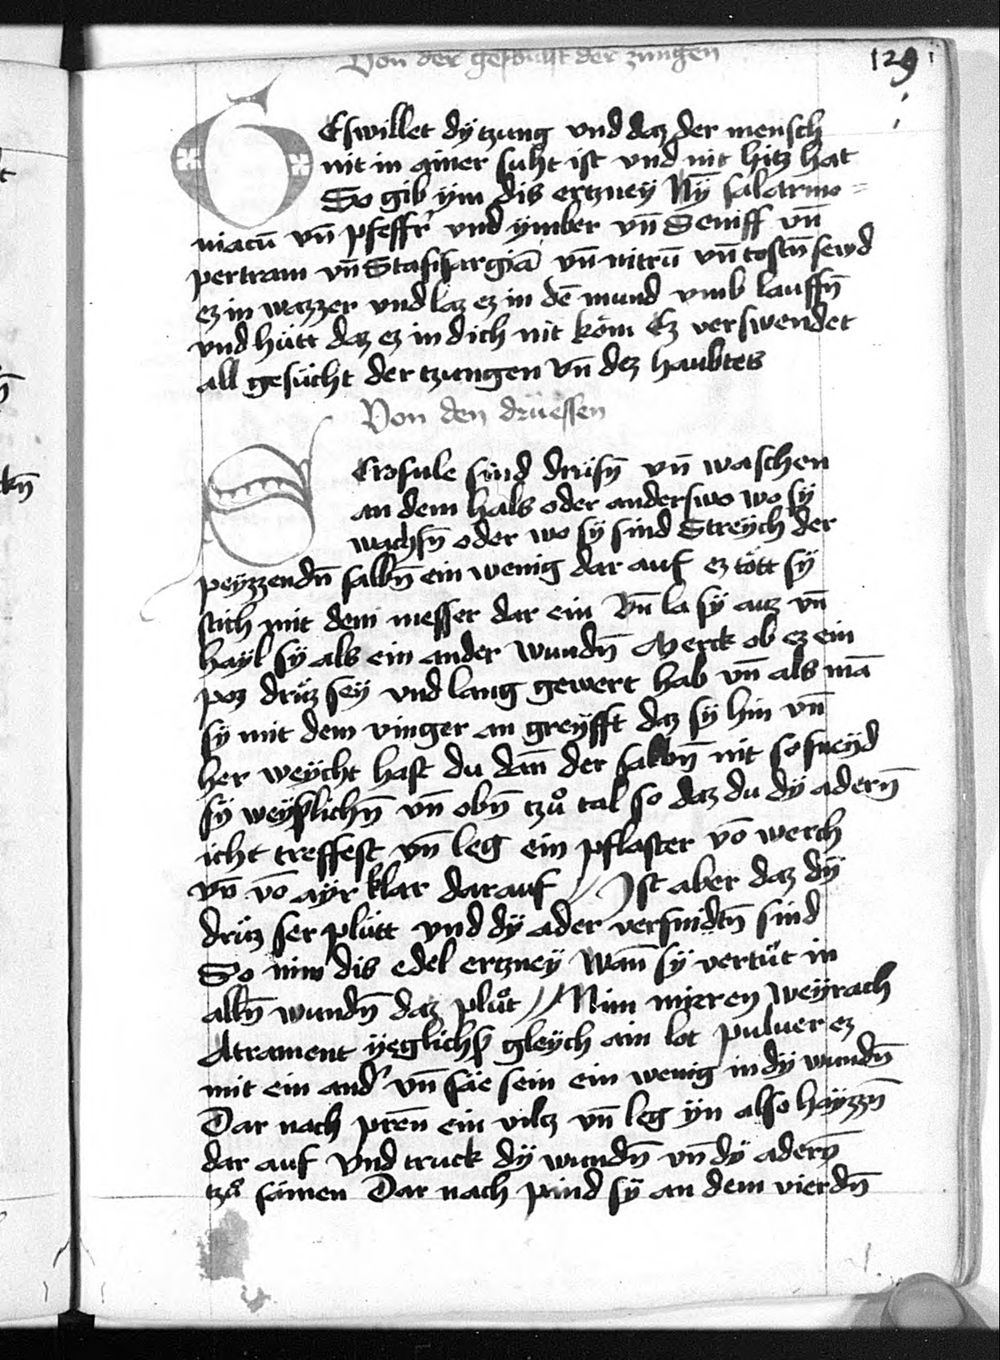 Von der geswlst der zungen
129
GEswillet dÿ tzung vnd daz der mensch
nit in ainer suht ist vnd nit hitz hat
So gib ÿm dis ertzneÿ Nÿm̄ salarmo=
niacū vn̄ pfeffer vnd ÿmber vn̄ Seniff vn̄
pertram vn̄ Stafisargiā vn̄ nitrū vn̄ costn̄ sewd
ez in wazzer vnd laz ez in dē mund vmb lauffn̄
vnd hütt daz ez in dich nit köm Ez verswendet
all gesücht der tzungen vn̄ dez haubtes
Von den drüessen
SCrofule sind drüsn̄ vn̄ waschen
an dem hals oder anderswo wo sÿ
wachsn̄ oder wo sÿ sind Streÿch der
peÿzzendn̄ salbn̄ ein wenig dar auf ez tött sÿ
stich mit dem messer dar ein Vn̄ la sÿ auz vn̄
haÿl sÿ als ein ander wundn̄ Merck ob ez ein
poz drüz seÿ vnd lang gewert hab vn̄ als mā
sÿ mit dem vinger an greÿfft daz sÿ hin vn̄
her weÿcht hast du dan̄ der salbn̄ nit so sneÿd
sÿ weÿslichn̄ vn̄ obn̄ tzuͦ tal so daz du dÿ adern̄
icht treffest vn̄ leg ein pflaster vō werch
vn̄ vō aÿr klar darauf // Ist aber daz dÿ
drüz ser plütt vnd dÿ ader versnidtn̄ sind
So nim dis edel ertzneÿ Wan̄ sÿ vertüt in
alln̄ wundn̄ daz pluͦt // Nim mirren Weÿrach
Atrament ÿeglichs gleÿch ain lot puluer ez
mit ein ander vn̄ säe sein ein wenig in dÿ wundn̄
Dar nach pren̄ ein vilcz vn̄ leg ÿn also haÿzzn̄
dar auf Vnd truck dÿ wundn̄ vn̄ dÿ adern̄
tzuͦ sämen Dar nach pind sÿ an dem vierdn̄